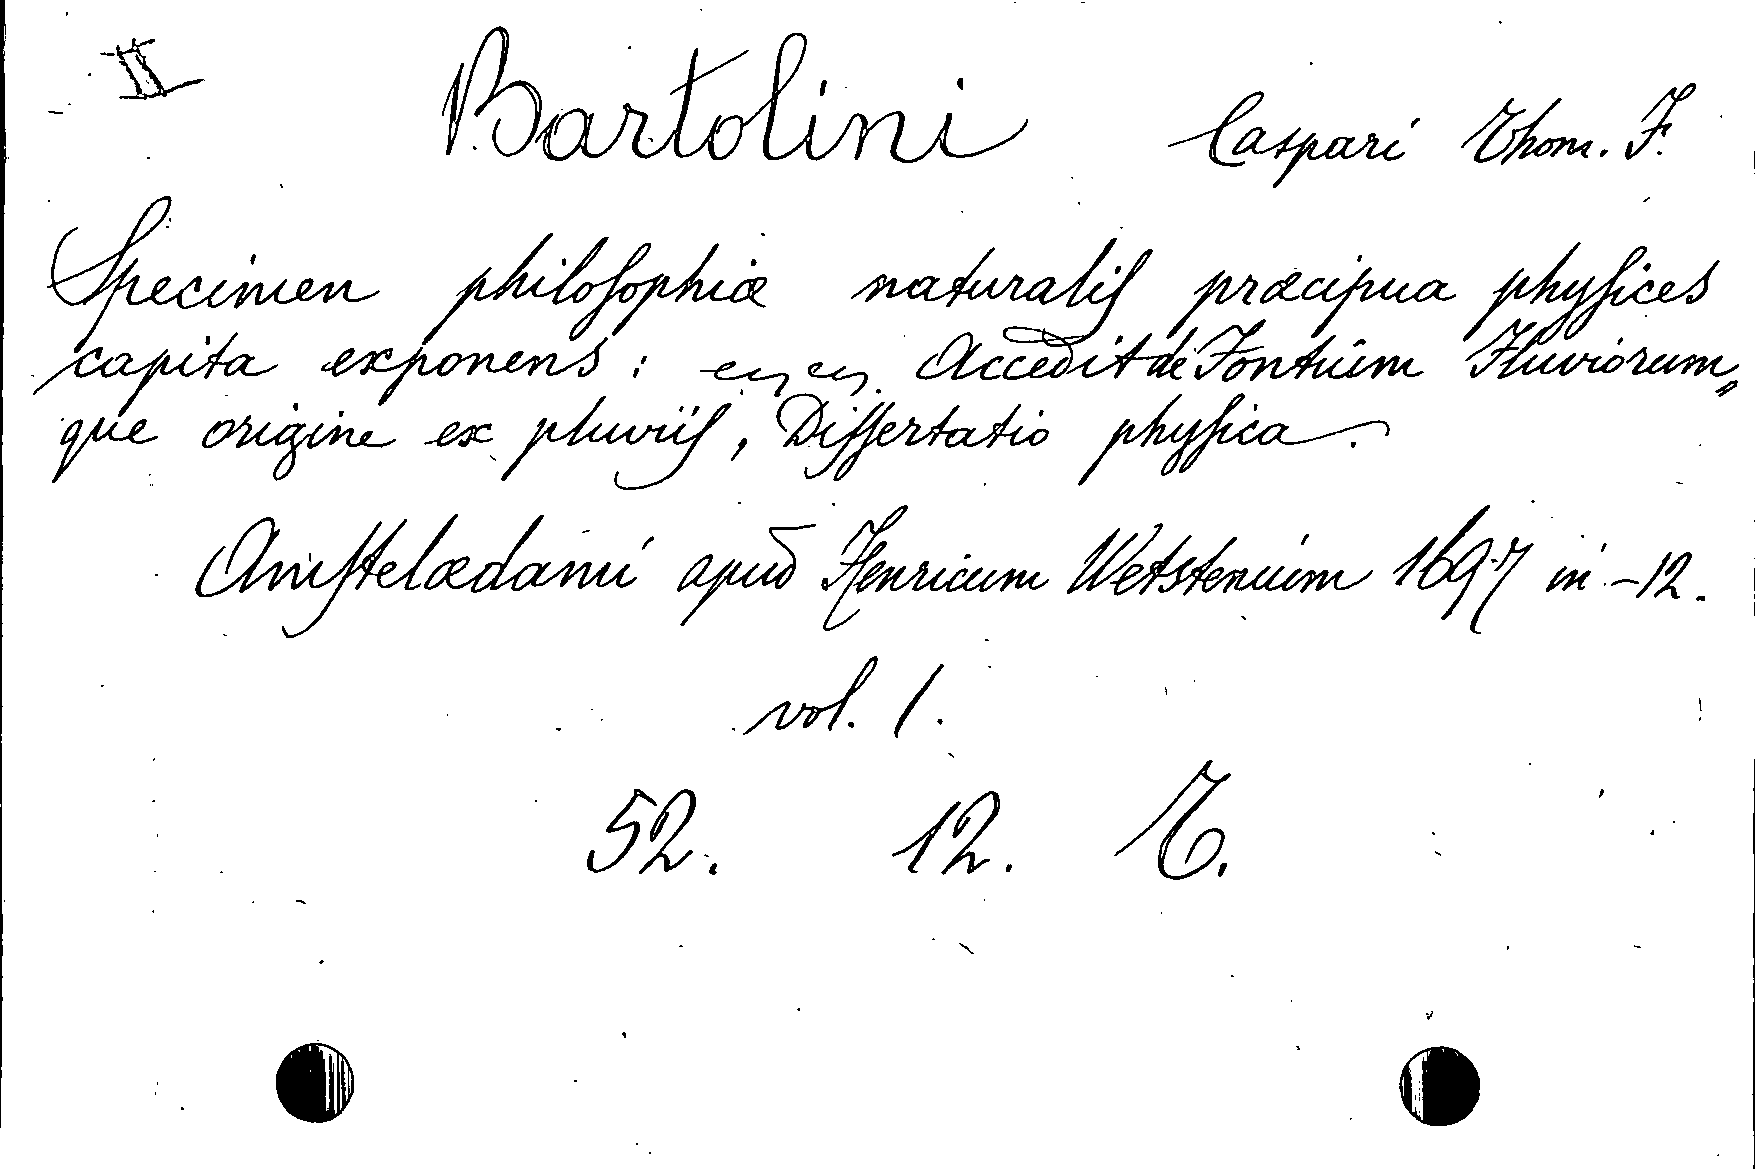 II
Bartolini Caspari Thom. F.
Specimen philoſophiæ naturaliſ præcipua phyſices
capita exponens: Accedit de Fontium Fluviorum„
que origine ex pluviiſ, Diſſertatio phyſica.
Amſtelædami apud Henricum Wetstenium 1697 in-12.
vol. 1.
52. 12. C.